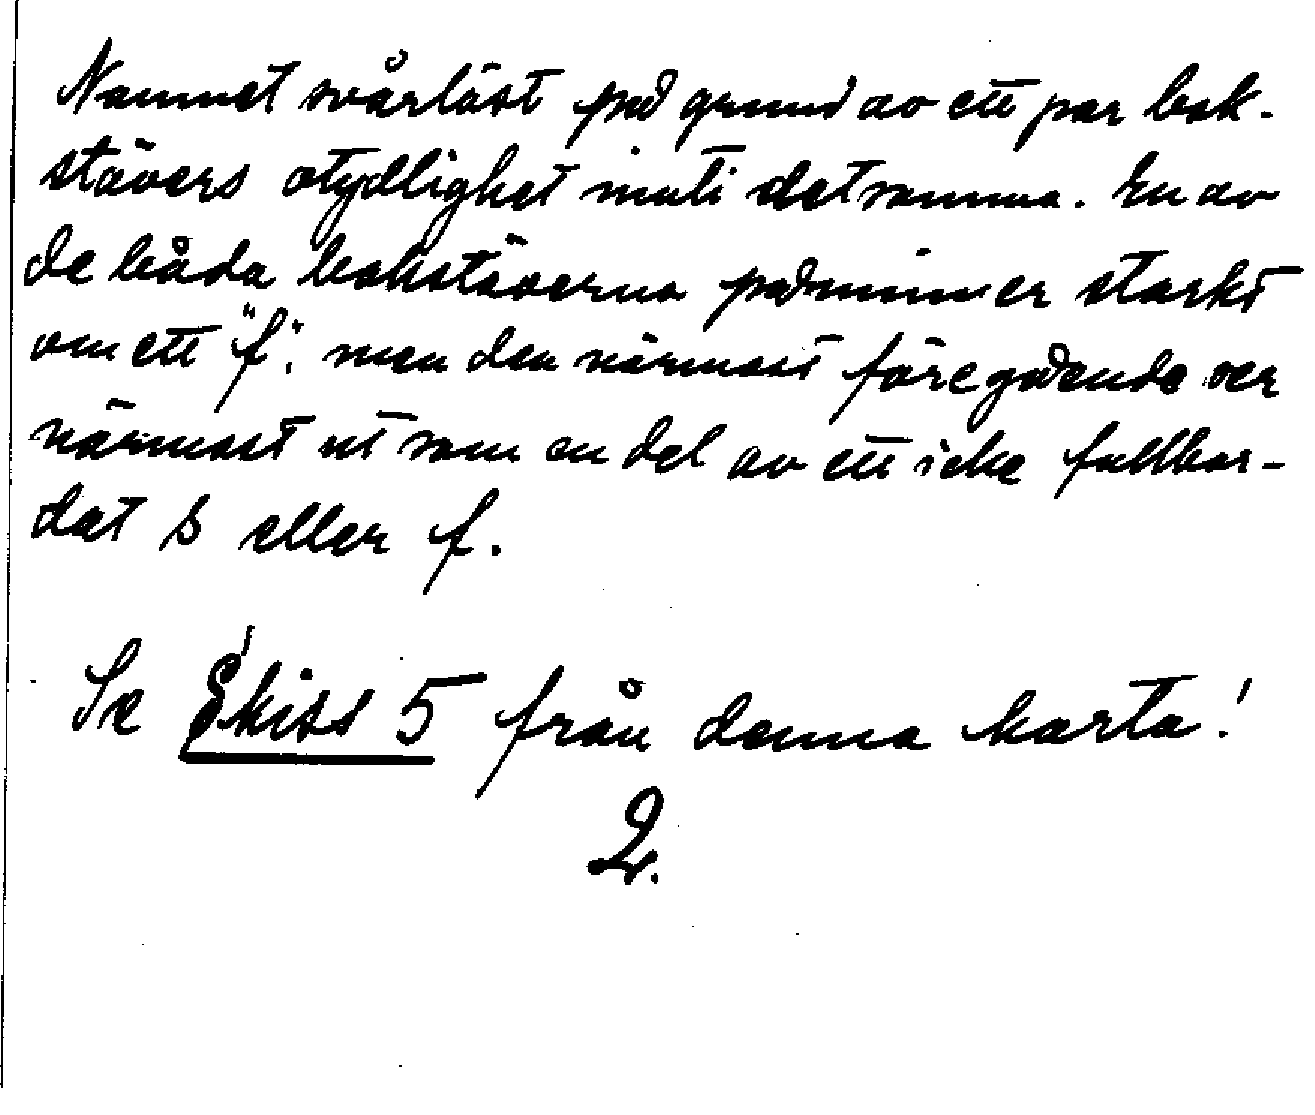 Namnet svårläst på grund av ett par bok-
stävers otydlighet inuti detsamma. En av
de båda bokstäverna påminner starkt
om ett "f", men den närmast föregående ser
närmast ut som en del av ett icke fullbor-
dat s eller f.
Se Skiss 5 från denna karta!
2.